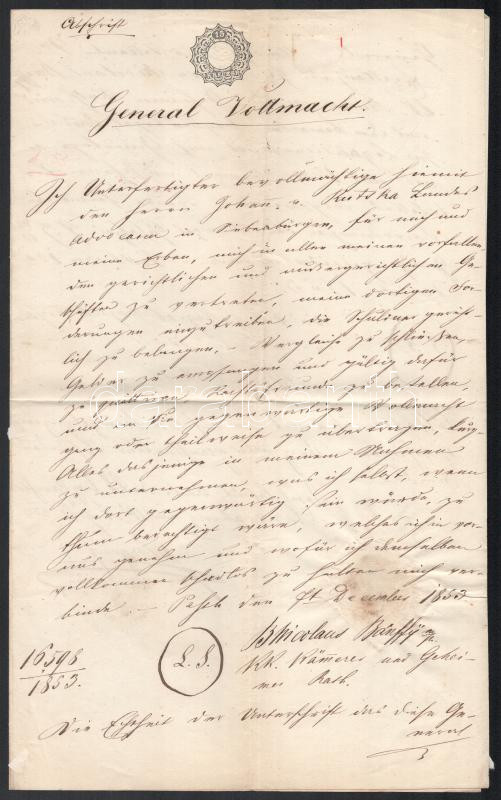 Abschrift
15
General Vollmacht.
Ich Unterfertigter bevollmächtige hiemit
den Herrn Johan v. Kutska Landes
Advocaten in Siebenbürgen, für mich und
meine Erben, mich in allen meinen vorfallen
den gerichtlichen und außergerichtlichen Ge-
schäften zu vertreten, meine dortigen For-
derungen einzutreiben, die Schuldner gericht-
lich zu belangen, Vergleiche zu schließen,
Gelder zu empfangen und gültig dafür
zu quittiren Rechtsfreund zu bestellen,
und gegenwärtige Vollmacht
ganz oder theilweise zu übertragen, kurz
Alles dasjenige in meinem Nahmen
zu unternehmen, was ich selbst, wenn
ich dort gegenwärtig sein würde, zu
thun berechtigt wäre, welches ich im vor-
aus genehm und wofür ich denselben
vollkommen schadlos zu halten mich ver-
binde. Pesth den 7t December 1853
B Nicolaus Bánffy
KK. Kämmerer und Gehei-
mer Rath.
16598
1853.
L. S.
Die Echtheit der Unterschrift das diese Ge-
neral
darabanth